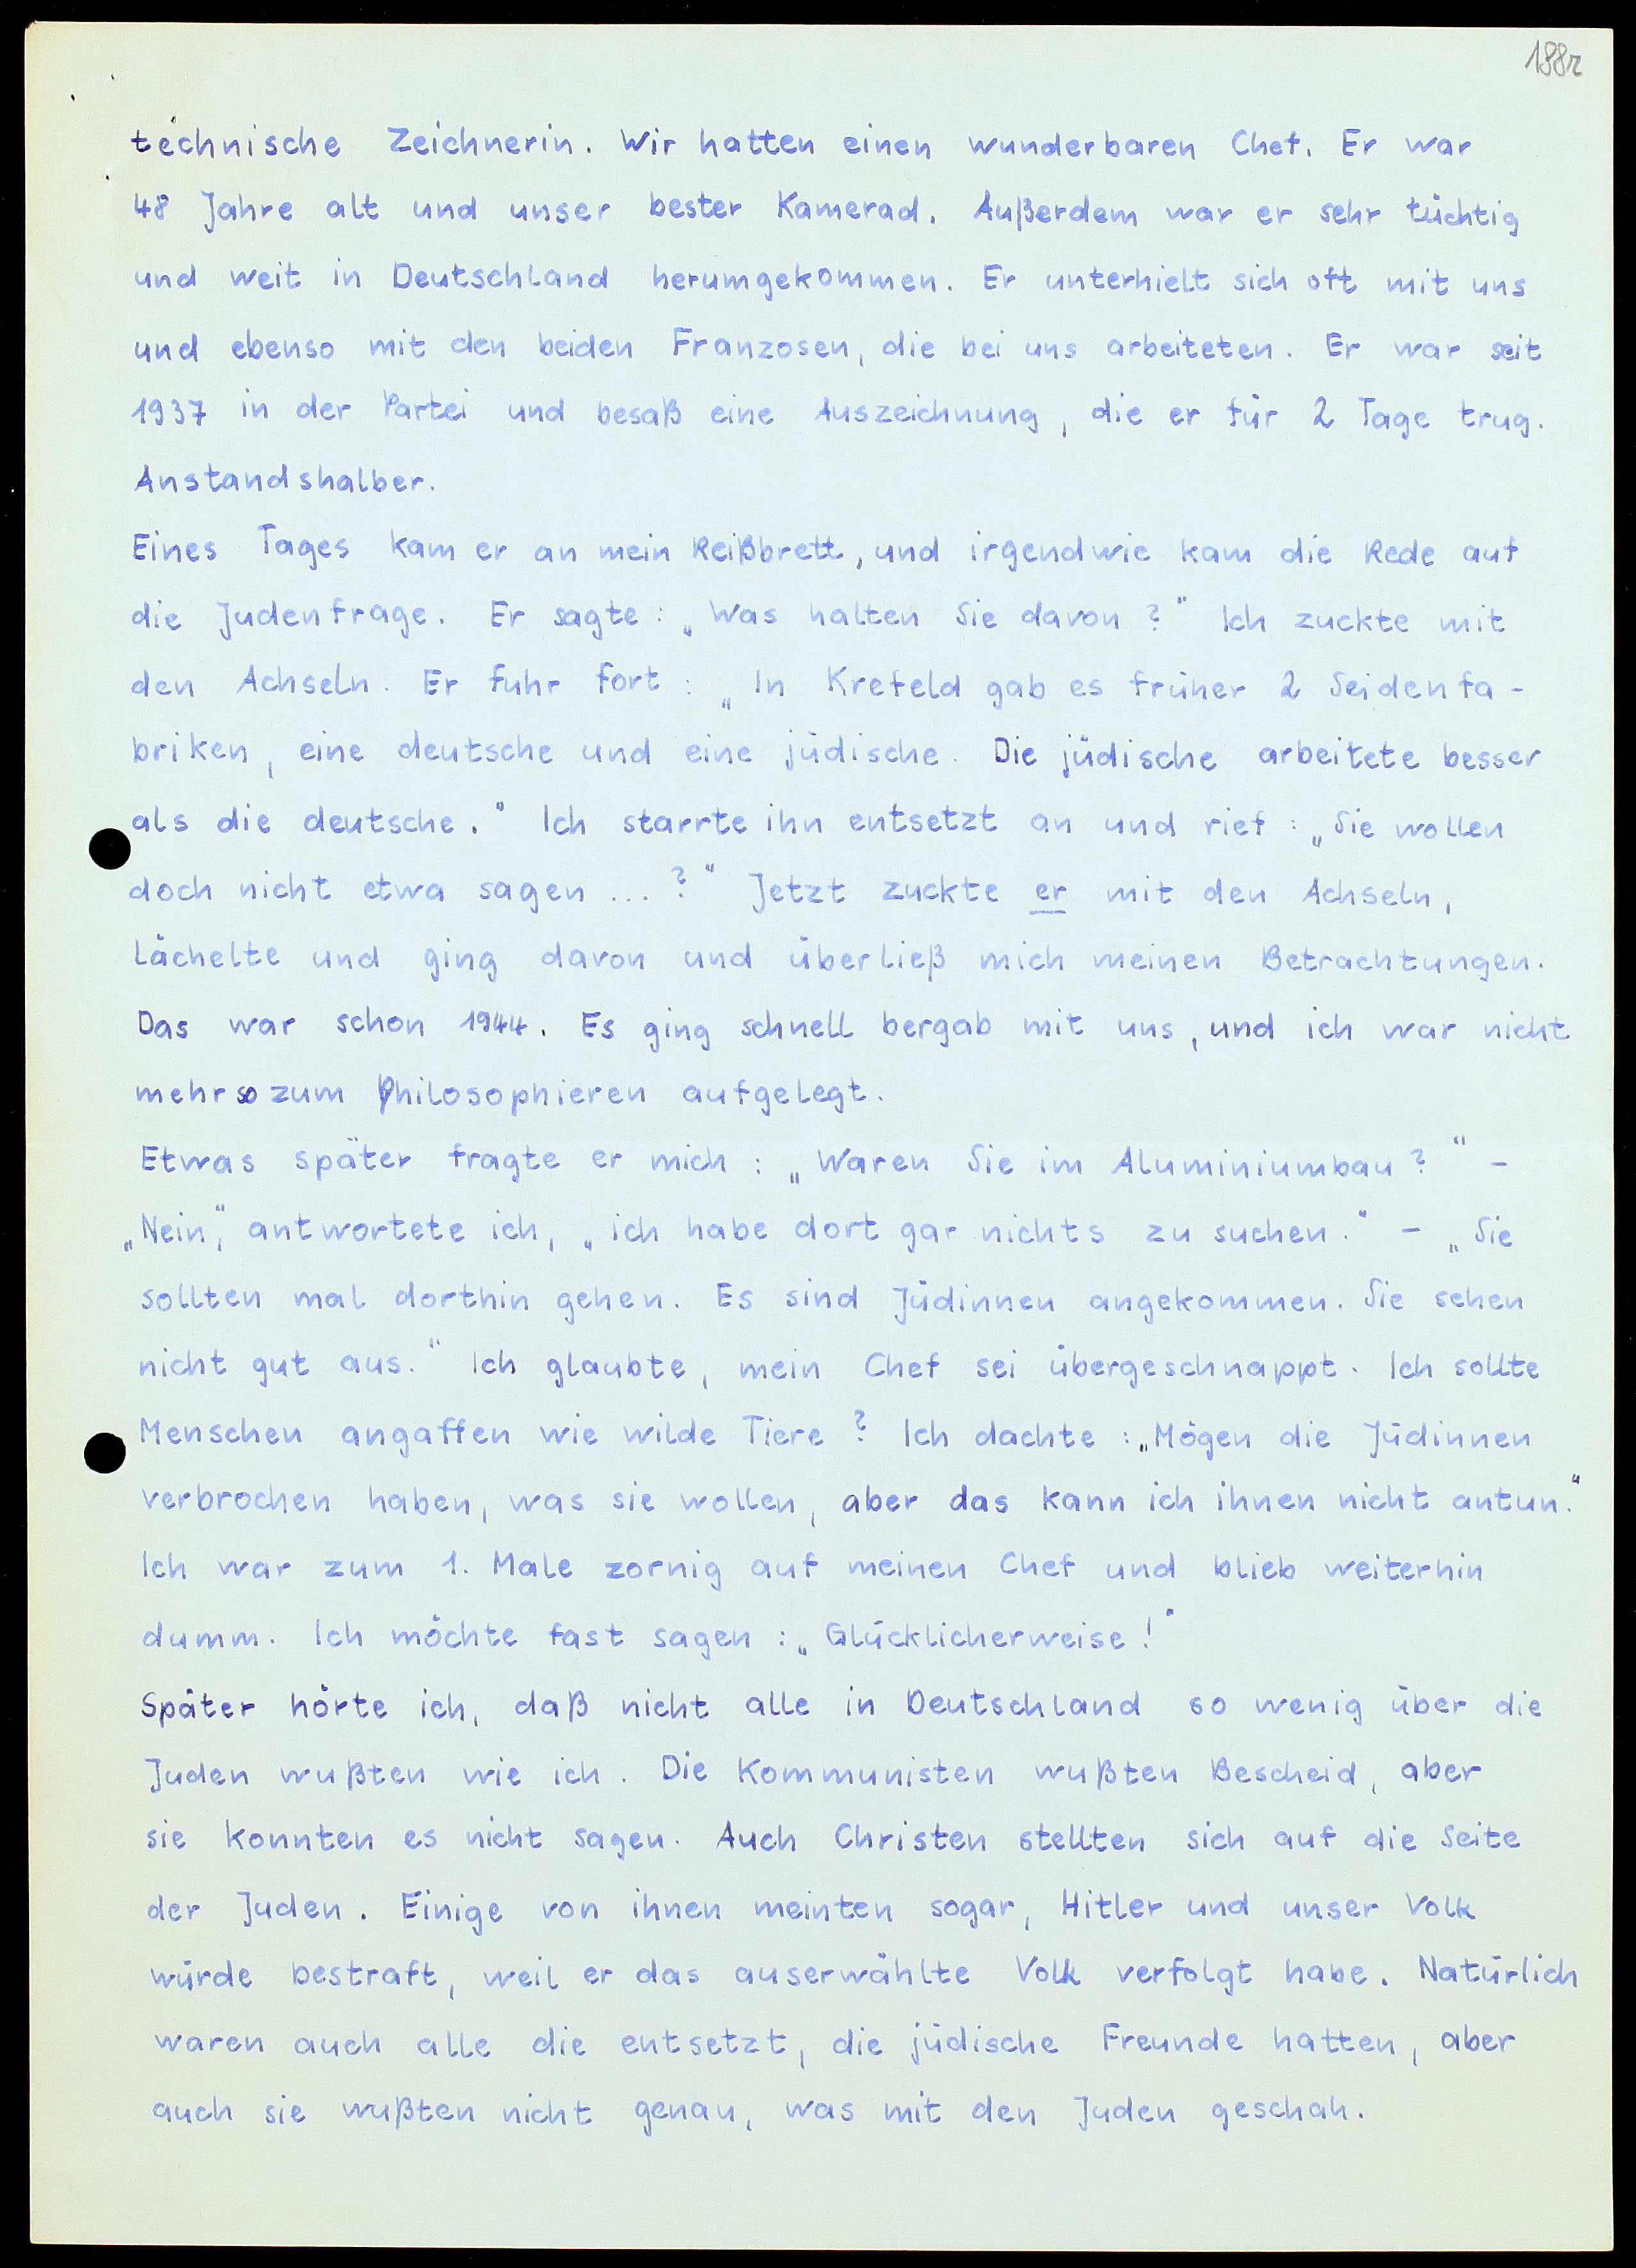 188r
technische Zeichnerin. Wir hatten einen wunderbaren Chef. Er war
48 Jahre alt und unser bester Kamerad. Außerdem war er sehr tüchtig
und weit in Deutschland herumgekommen. Er unterhielt sich oft mit uns
und ebenso mit den beiden Franzosen, die bei uns arbeiteten. Er war seit
1937 in der Partei und besaß eine Auszeichnung, die er für 2 Tage trug.
Anstandshalber.
Eines Tages kam er an mein Reißbrett, und irgendwie kam die Rede auf
die Judenfrage. Er sagte: „Was halten Sie davon?" Ich zuckte mit
den Achseln. Er fuhr fort: „In Krefeld gab es früher 2 Seidenfa-
briken, eine deutsche und eine jüdische. Die jüdische arbeitete besser
als die deutsche." Ich starrte ihn entsetzt an und rief: „Sie wollen
doch nicht etwa sagen ...?" Jetzt zuckte er mit den Achseln,
lächelte und ging davon und überließ mich meinen Betrachtungen.
Das war schon 1944. Es ging schnell bergab mit uns, und ich war nicht
mehr so zum Philosophieren aufgelegt.
Etwas später fragte er mich: „Waren Sie im Aluminiumbau?" –
„Nein", antwortete ich, „ich habe dort gar nichts zu suchen." – „Sie
sollten mal dorthin gehen. Es sind Jüdinnen angekommen. Sie sehen
nicht gut aus." Ich glaubte, mein Chef sei übergeschnappt. Ich sollte
Menschen angaffen wie wilde Tiere? Ich dachte: „Mögen die Jüdinnen
verbrochen haben, was sie wollen, aber das kann ich ihnen nicht antun."
Ich war zum 1. Male zornig auf meinen Chef und blieb weiterhin
dumm. Ich möchte fast sagen: „Glücklicherweise!"
Später hörte ich, daß nicht alle in Deutschland so wenig über die
Juden wußten wie ich. Die Kommunisten wußten Bescheid, aber
sie konnten es nicht sagen. Auch Christen stellten sich auf die Seite
der Juden. Einige von ihnen meinten sogar, Hitler und unser Volk
würde bestraft, weil er das auserwählte Volk verfolgt habe. Natürlich
waren auch alle die entsetzt, die jüdische Freunde hatten, aber
auch sie wußten nicht genau, was mit den Juden geschah.